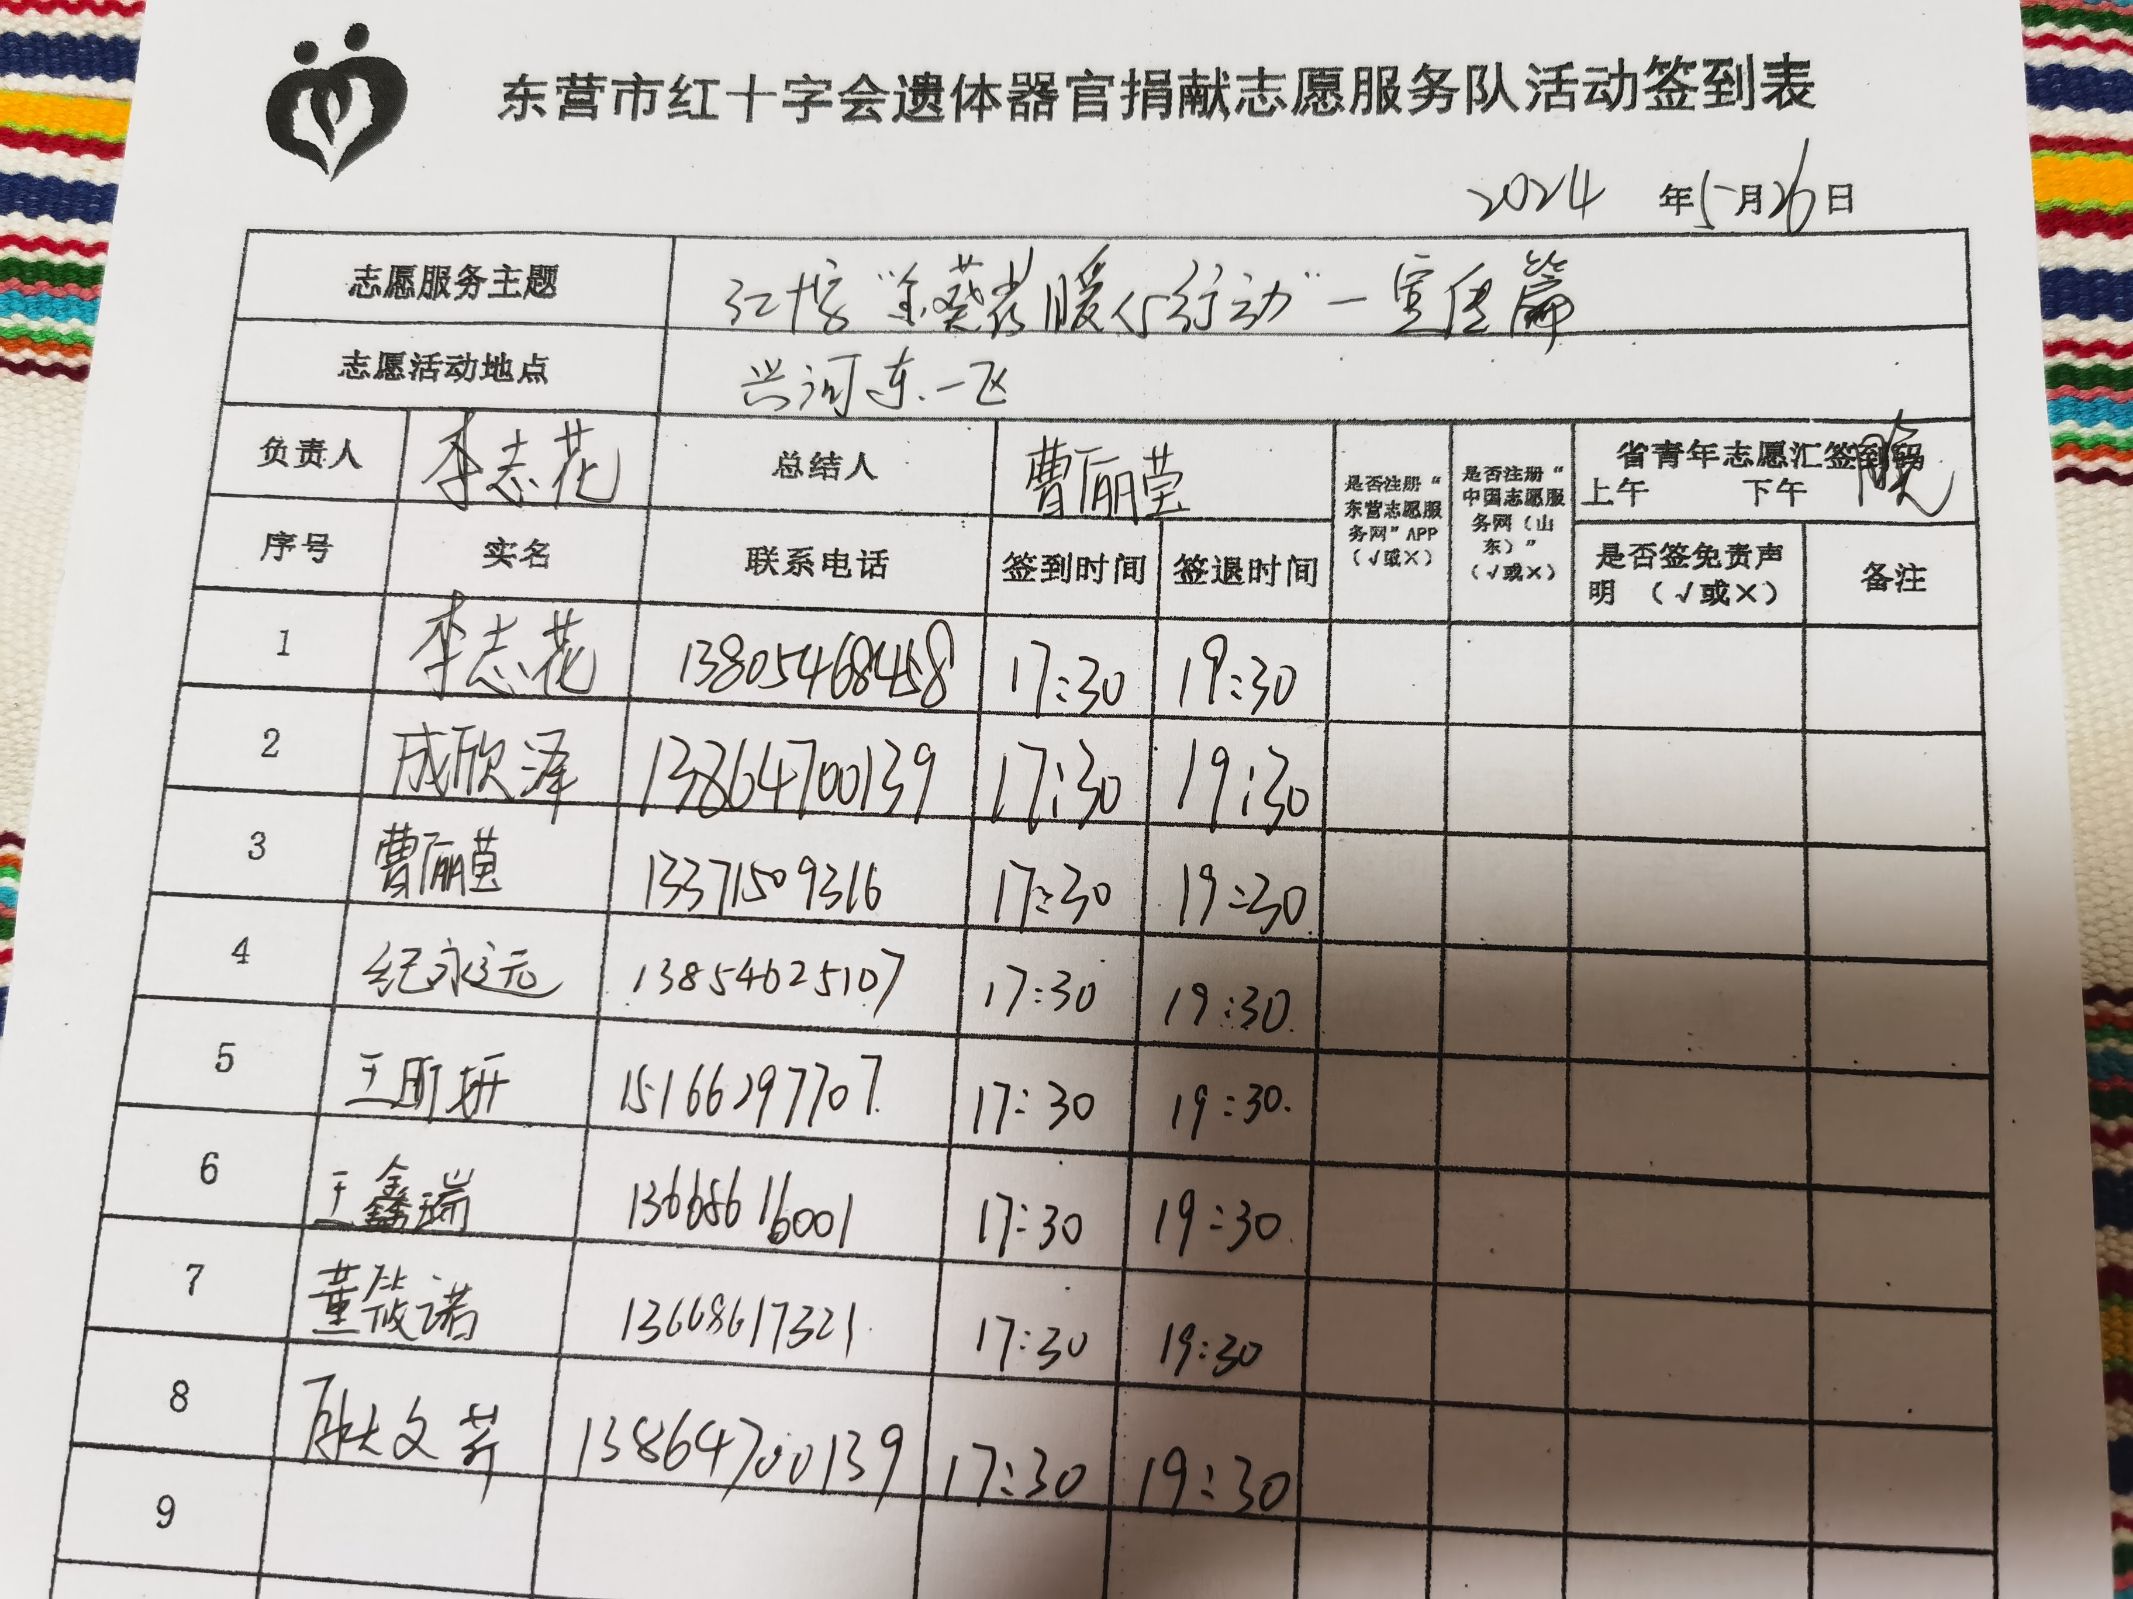 东营市红十字会遗体器官捐献志愿服务队活动签到表
2024 年5月26日
志愿服务主题 "金葵花暖心行动"一宣传篇
志愿活动地点 兴河东一区
负责人 李志花 总结人 曹俪莹 是否注册“东营志愿服务网”APP（√或×） 是否注册“中国志愿服务网（山东）”（√或×） 省青年志愿汇签到码 上午 下午 晚
序号 实名 联系电话 签到时间 签退时间 是否签免责声明 （√或×） 备注
1 李志花 13805468458 17:30 19:30
2 成欣泽 13864700139 17:30 19:30
3 曹俪莹 13371509316 17:30 19:30
4 纪永远 13854625107 17:30 19:30
5 王町妍 15166297707 17:30 19:30
6 王鑫瑞 13668616001 17:30 19:30
7 董筱诺 13668617321 17:30 19:30
8 耿文荞 13864700139 17:30 19:30
9